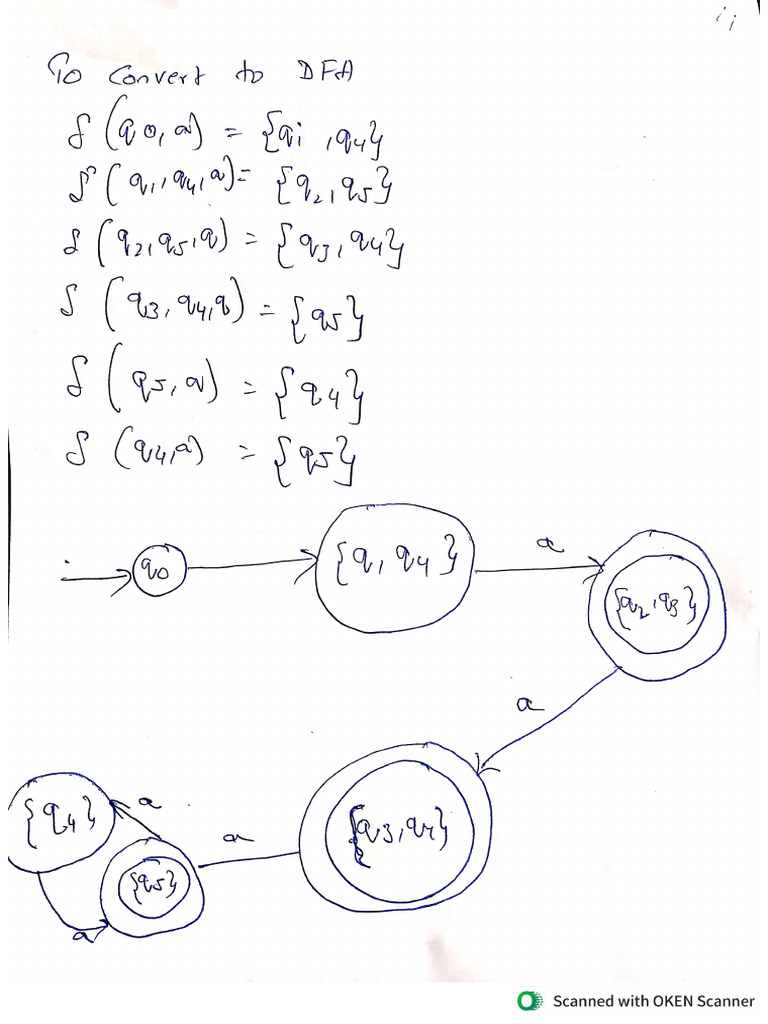 ii
To convert to DFA
δ (q0, a) = {qi, q4}
δ (q1, q4, a) = {q2, q5}
δ (q2, q5, q) = {q3, q4}
δ (q3, q4, q) = {q5}
δ (q5, a) = {q4}
δ (q4, a) = {q5}
q0
{q, q4}
a
{q2, q5}
a
{q3, q4}
a
{q5}
a
{q4}
a
Scanned with OKEN Scanner